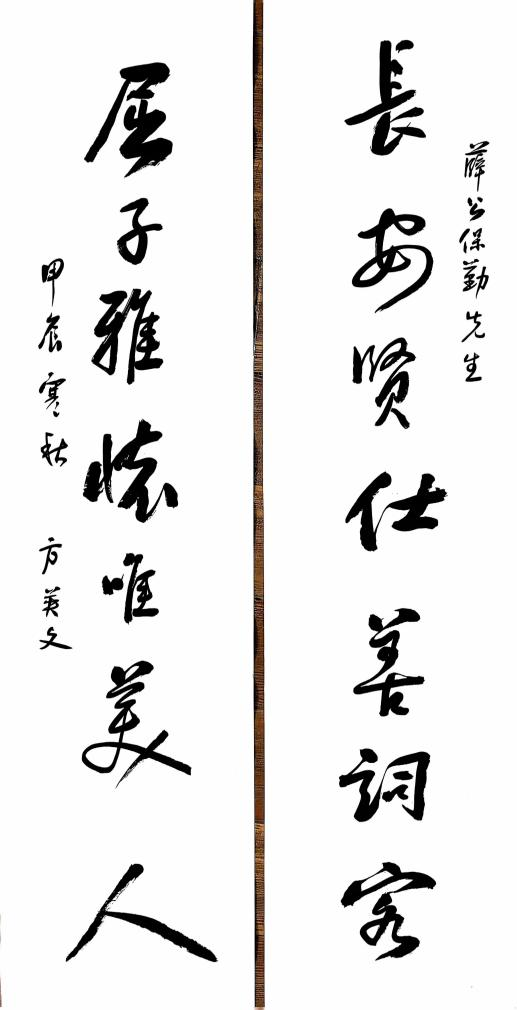 薛公保勤先生
長安賢仕善詞客
屈子雅懷唯美人
甲辰寒秋 方英文